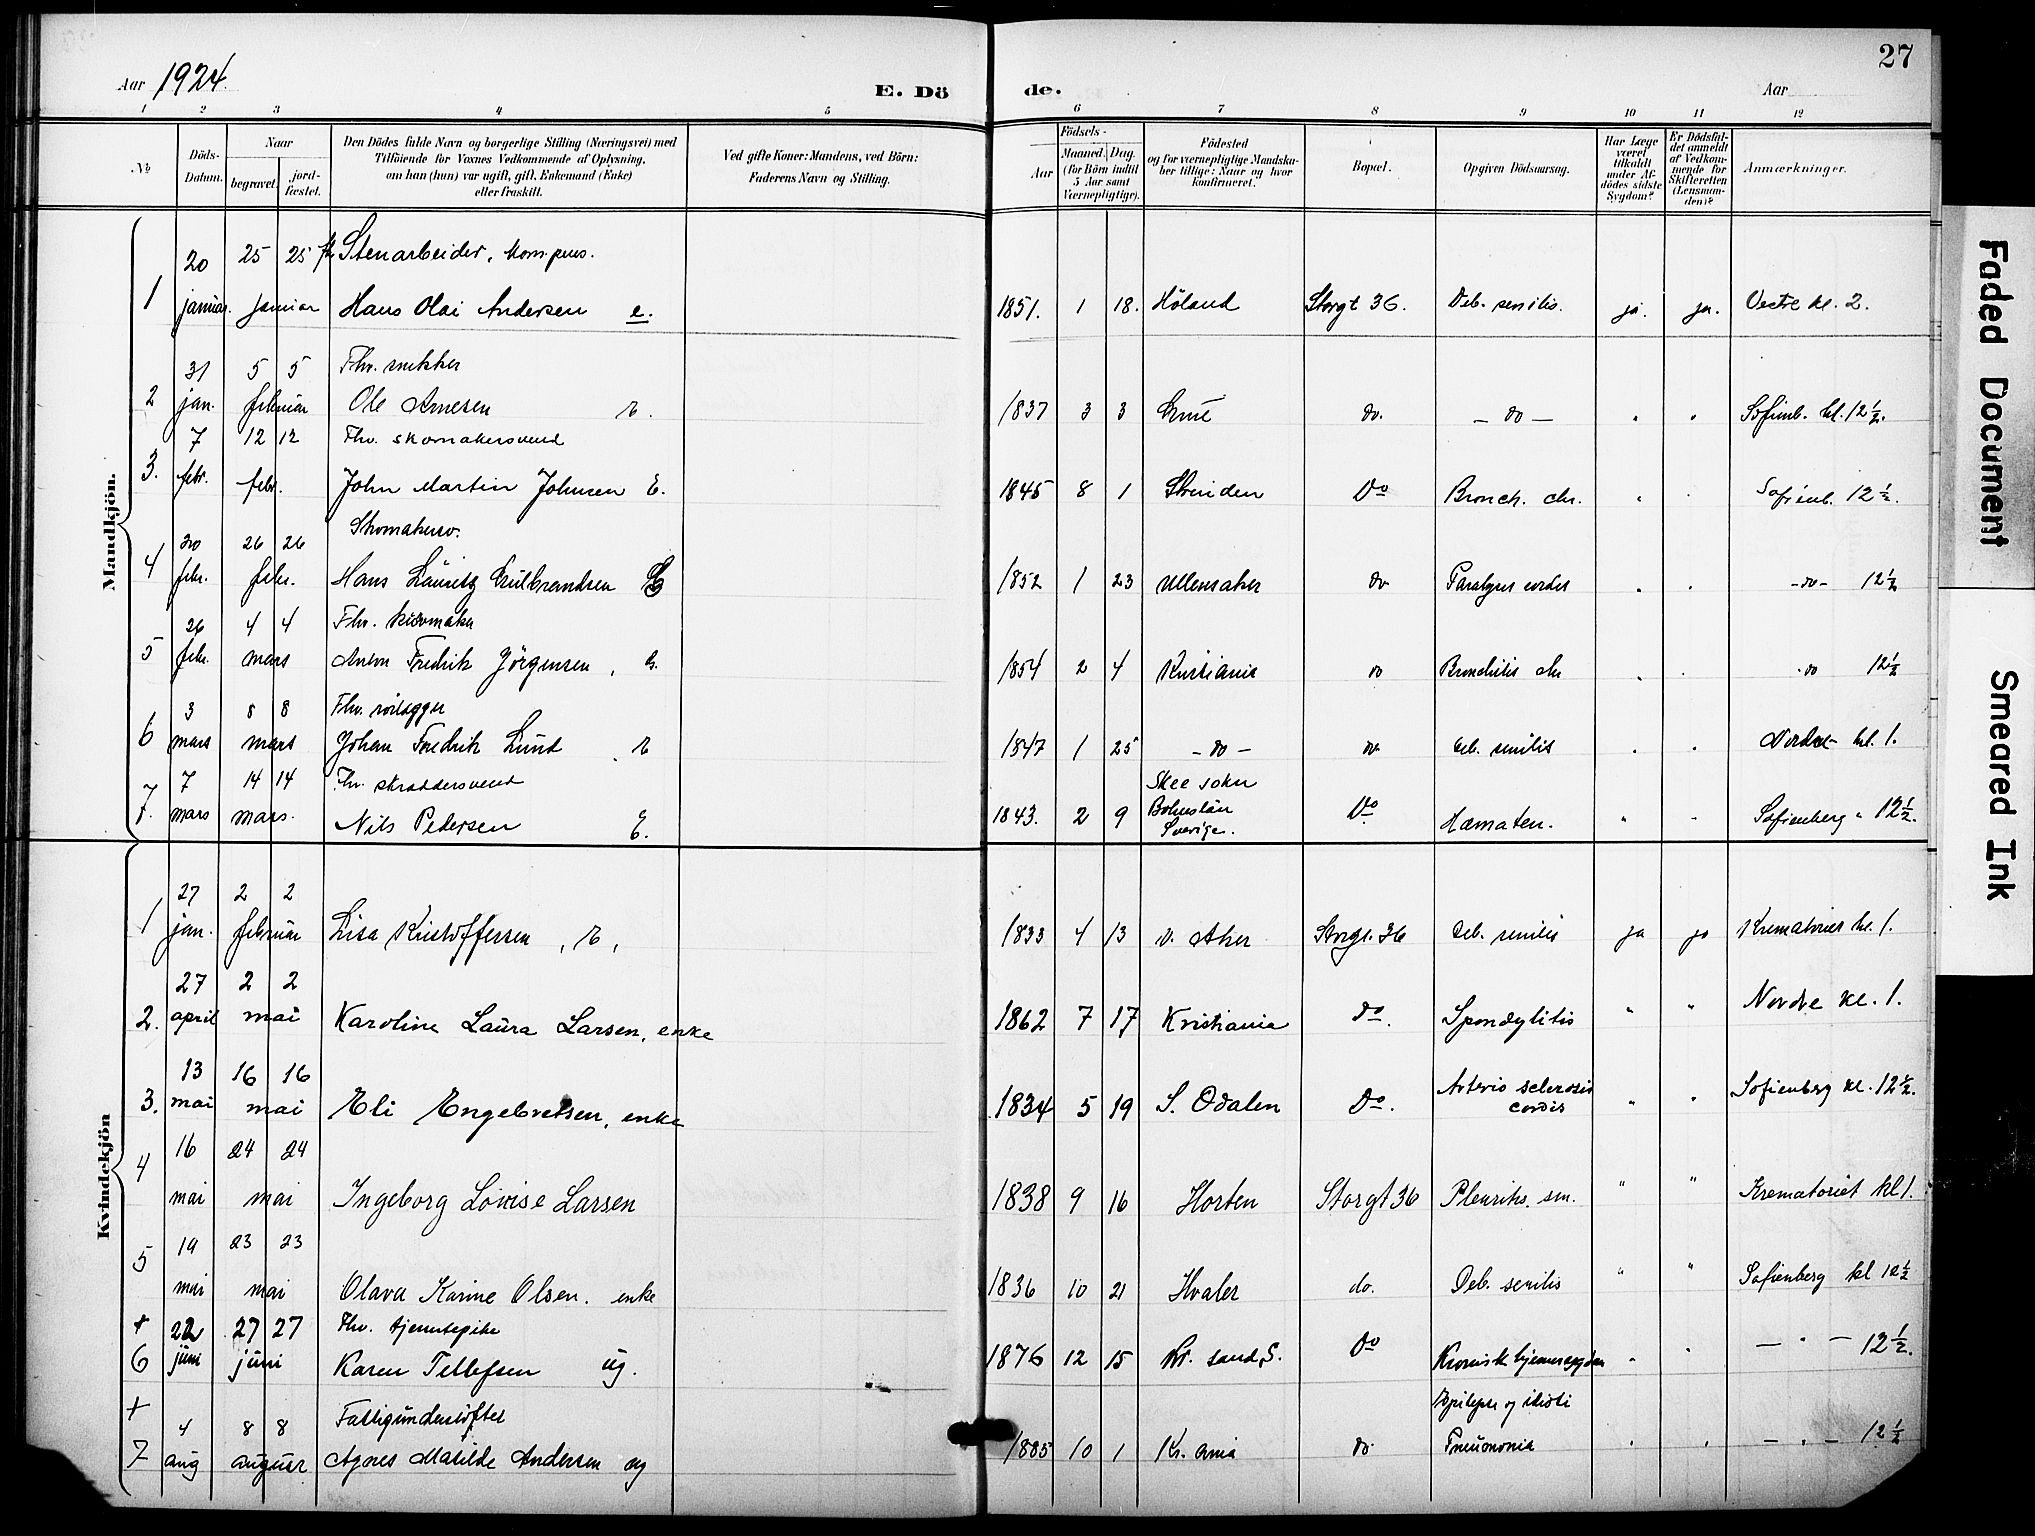 27
Aar 1924. E. Dö de. Aar
1 2 3 4 5 6 7 8 9 10 11 12
№
Döds-Datum.
Naar
begravet.
jord-fæstet.
Den Dödes fulde Navn og borgerlige Stilling (Næringsvei) med
Tilföiende for Voxnes Vedkommende af Oplysning,
om han (hun) var ugift, gift, Enkemand (Enke)
eller fraskilt.
Ved gifte Koner: Mandens, ved Börn:
Faderens Navn og Stilling.
Födsels-
Aar
Maaned. Dag.
(for Börn indtil
5 Aar samt
Værnepligtige).
Födested
og for værnepligtige Mandska-
ber tillige: Naar og hvor
konfirmeret.
Bopæl.
Opgiven Dödsaarsag.
Har Læge
været
tilkaldt
under Af-
dödes sidste
Sygdom?
Er Dödsfal-
det anmeldt
af Vedkom-
mende for
Skifteretten
(Lensman-
den)?
Anmærkninger.
Mandkjön.
20 25 25 Stenarbeider,
1 januar. januar Hans Olai Andersen e. 1851. 1 18. Höland Storgt 36. Deb. senilis. ja. ja. Vestre kl. 2.
31 5 5 Fhv. snekker
2 jan. februar Ole Arnesen E. 1837 3 3 do. — do — " " Sofienb. kl. 12½.
7 12 12 Fhv. skomakersvend
3. febr. febr. John Martin Johnsen E. 1845 8 1 Strinden Do Bronch. chr. " " Sofienb. 12½.
20 26 26 Skomakersv.
4 febr. febr. Hans Lauritz Gulbrandsen E 1852 1 23 Ullensaker do Paralysis cordis " " -do- 12½
26 4 4 Fhv. kurvmaker
5 febr. mars Anton Fredrik Jörgensen, E. 1854 2 4 Kristiania do Bronchitis chr " " do 12½
3 8 8 Fhv.
6 mars mars Johan Fredrik Lund E 1847 1 25 — do — do Deb. senilis " " Nordre kl. 1.
7 14 14 Fhv. skræddersvend Skee sokn
7. mars mars. Nils Pedersen E. 1843. 2 9 Bohuslän Sverige. Do Hæmaten. " " Sofienberg " 12½.
Kvindekjön
27 2 2
1 jan. februar Lisa Kristoffersen, E, 1833 4 13 v. Aker Storgt. 36 Deb. senilis ja ja Krematoriet kl. 1.
27 2 2
2. april mai Karoline Laura Larsen, enke 1862 7 17 Kristiania Do. Spondylitis " " Nordre kl. 1.
13 16 16
3. mai mai Eli Engebretsen, enke 1834 5 19 S. Odalen Do. Arterio sclerosis cordis " " Sofienberg kl. 12½.
16 24 24
4 mai mai Ingeborg Lovise Larsen 1838 9 16 Horten Storgt 36 Pleuritis. sin. " " Krematoriet kl 1.
19 23 23
5 mai mai Olava Karine Olsen. enke 1836 10 21 Hvaler do. Deb. senilis " " Sofienberg kl 12½
+ 22 27 27 Fhv. tjenestepike
6 juni juni Karen Tellefsen ug. 1876 12 15 Kr. sand, S. Do Kronisk hjernesygdom " " — " — 12½.
+ 4 8 8 Fattigunderstöttet Epilepsi og idioti
7 aug august Agnes Matilde Andersen ug 1885 10 1 Kr. ania do Pneumonia " " — " — 12½
Faded Document
Smeared Ink